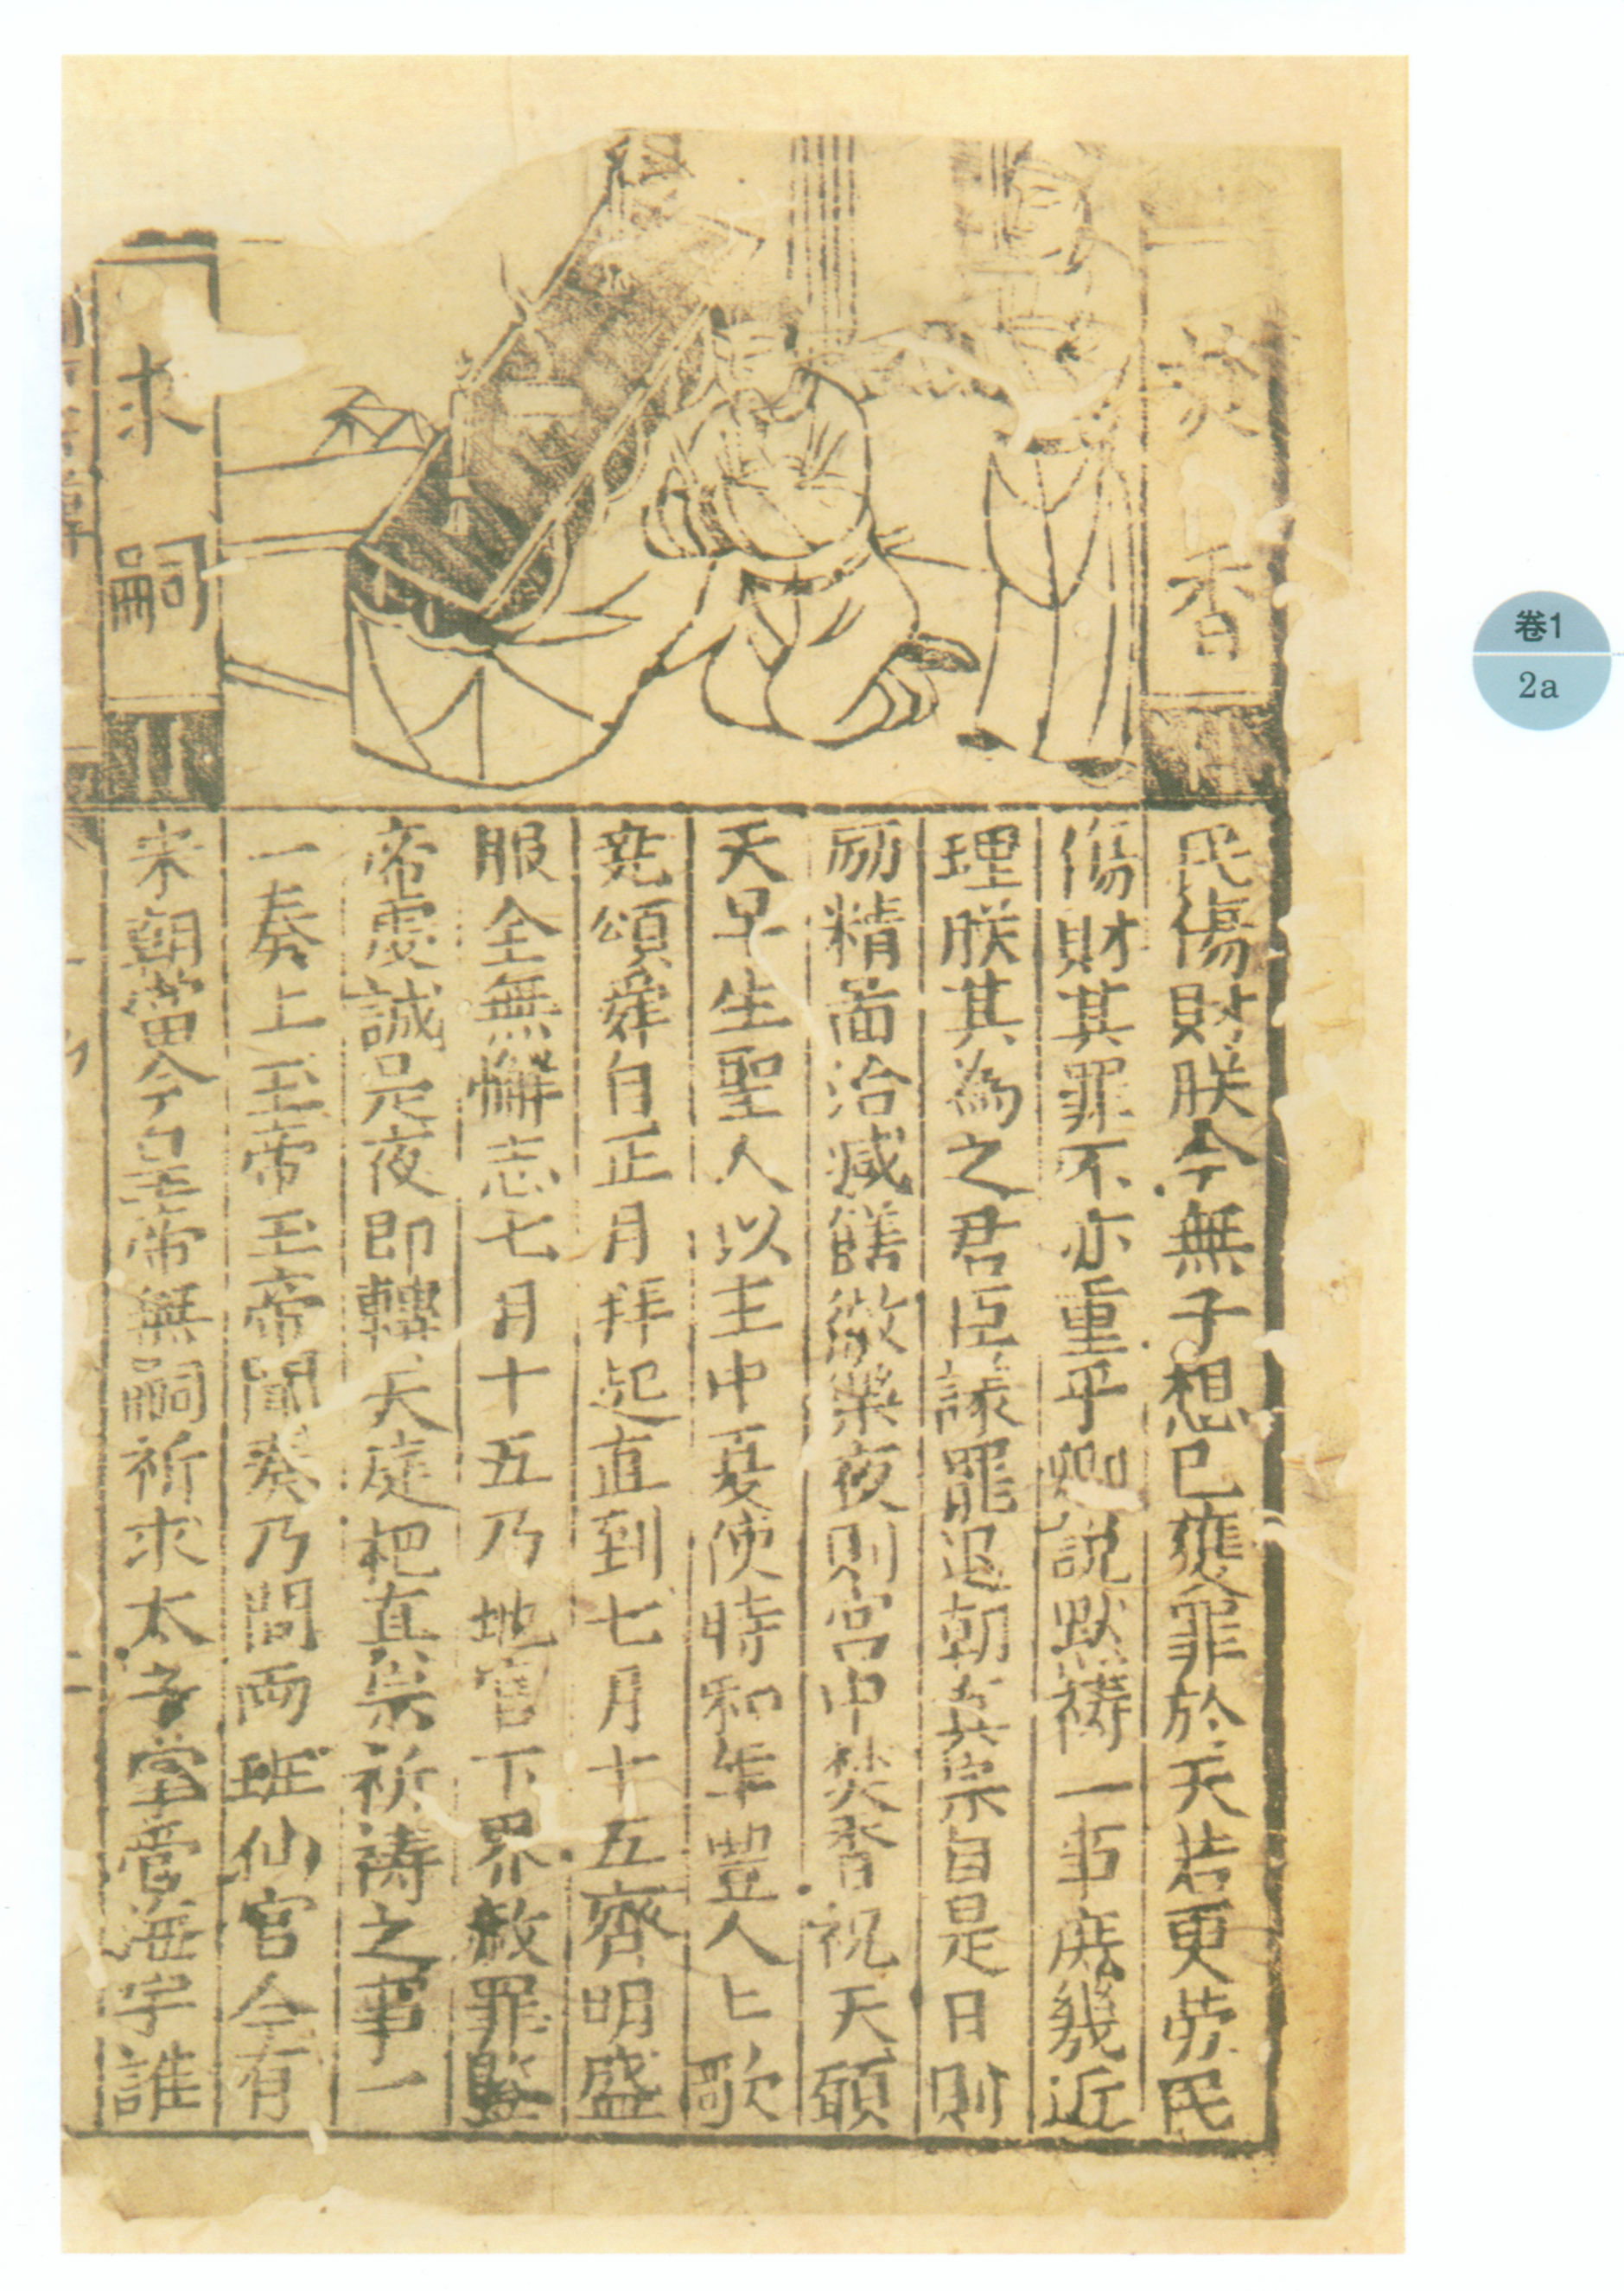 焚香
求嗣
民傷財朕今無子想已獲罪於天若更勞民
傷財其罪不亦重乎卿說默禱一事庶幾近
理朕其為之君臣議罷退朝真宗自是日則
励精圖治减饍徹樂夜則宮中焚香祝天願
天早生聖人以主中夏使時和年豐人匕歌
尭頌舜自正月拜起直到七月十五齊明盛
服全無懈志七月十五乃地官下界赦罪鑒
帝虔誠是夜即轉天庭把真宗祈禱之事一
一奏上玉帝玉帝聞奏乃問両班仙官今有
宋朝當今皇帝無嗣祈求太子當管海宇誰
卷1
2a